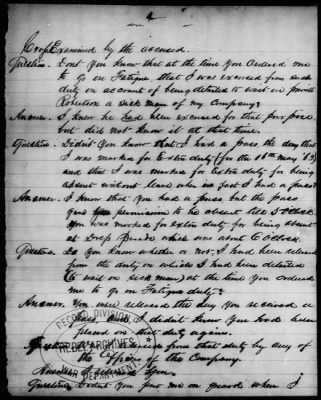 4
Cross Examined by the accused.
Question. Dont You Know that at the time You ordered me
to go on Fatigue, that I was excused from such
duty on account of being detailed to wait on private
a sick man of my Company?
Answer. I knew he had been excused for that purpose
but did not know it at that time.
Question. Didn't You Know that I had a pass the day that
I was marked for Extra duty (for the 16th may '63)
and that I was marked for Extra duty for being
absent without leave when in fact I had a pass?
Answer. I know that You had a pass, but the pass
gave permission to be absent till 5 O'Clock.
You was marked for extra duty for being absent
at Drep Parade which was about 6 O'Clock.
Question. Do You Know whether or not I had been released
from the duty on which I had been detailed
(to wait on sick man) at the time You ordered
me to go on Fatigue duty?
Answer. You were released the day You received a
pass, but I didn't know You had been
placed on that duty again.
Question. released from that duty by any of
the Officers of the Company.
Answer. I released You.
Question. Didn't You put me on guard when I
RECORD DIVISION
REBEL ARCHIVES
WAR DEPARTMENT